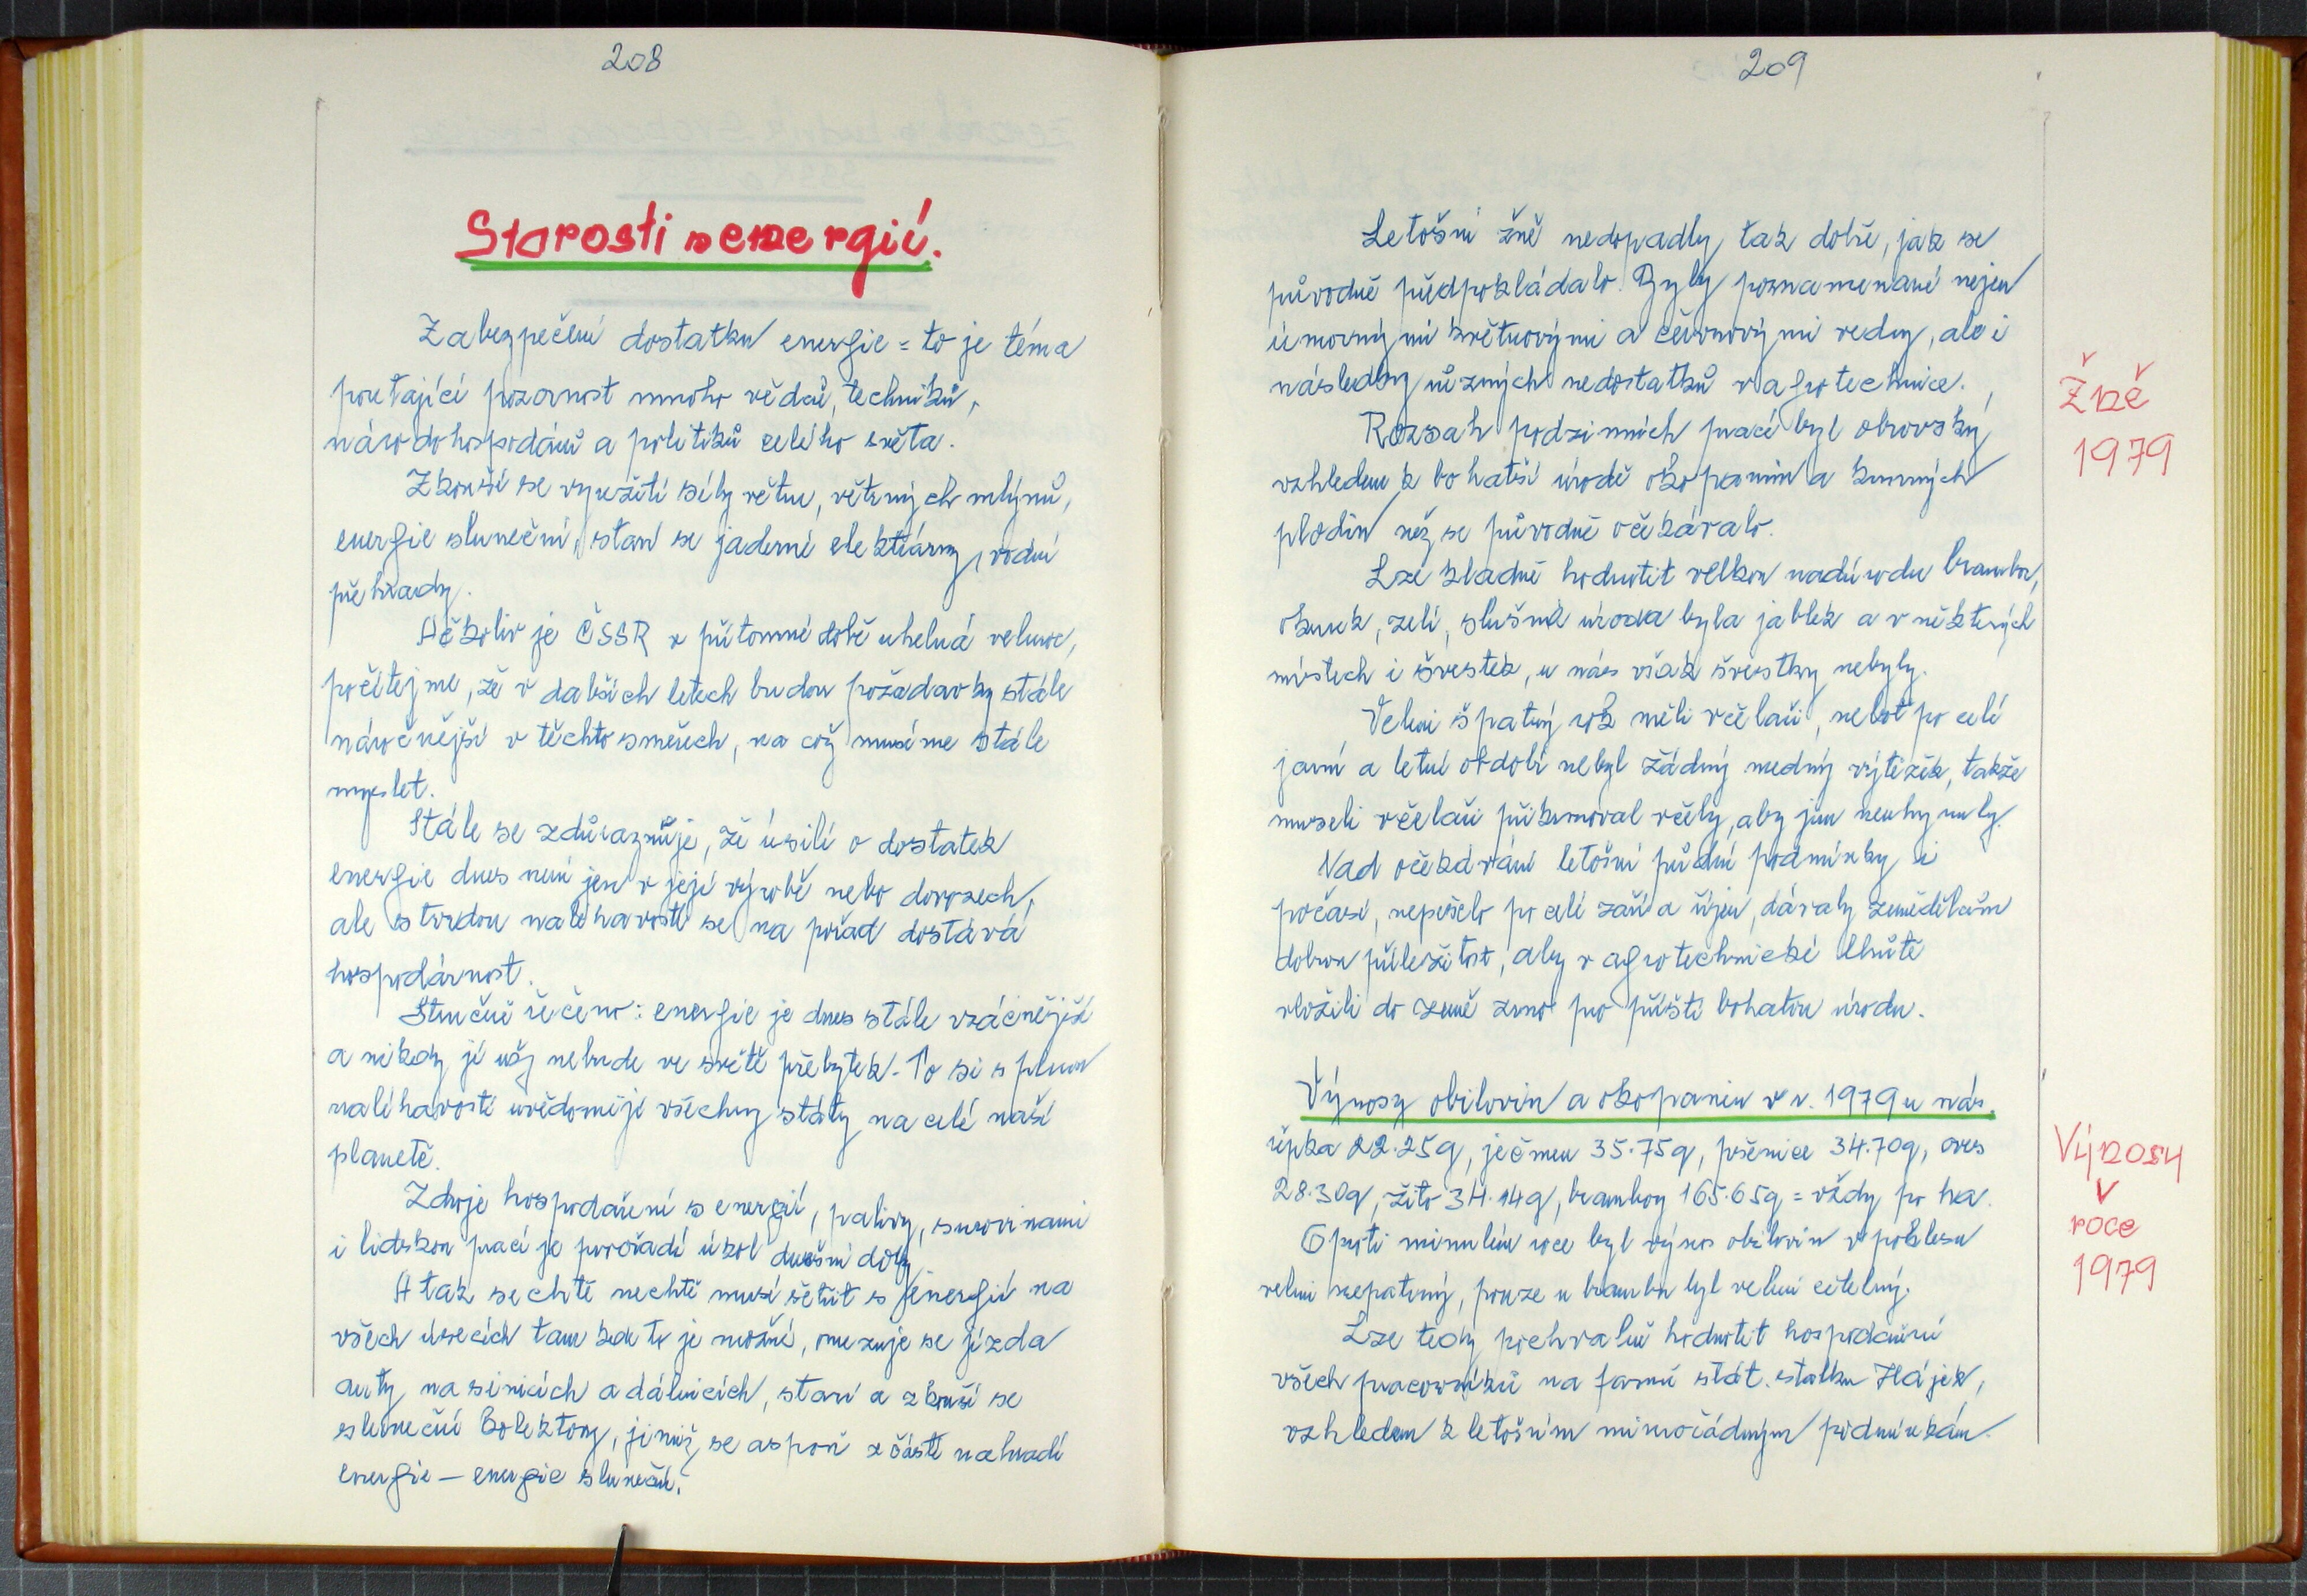 208
Starosti s energií.
Zabezpečení dostatku energie = to je téma
poutající pozornost mnoho vědců, techniků,
národohospodářů a politiků celého světa.
Zkouší se využití síly větru, větrných mlýnů,
energie sluneční, staví se jaderné elektrárny, vodní
přehrady.
Ačkoliv je ČSSR v přítomné době uhelná velmoc,
počítejme, že v dalších letech budou požadavky stále
náročnější v těchto směrech, na což musíme stále
myslet.
Stále se zdůrazňuje, že úsilí o dostatek
energie dnes není jen v její výrobě nebo dovozech,
ale s tvrdou naléhavostí se na pořad dostává
hospodárnost.
Stručně řečeno: energie je dnes stále vzácnější
a nikdy jí už nebude ve světě přebytek. To si s plnou
naléhavostí uvědomují všechny státy na celé naší
planetě.
Zdroje hospodaření s energií, palivy, surovinami
i lidskou prací je prvořadý úkol dnešní doby.
A tak se chtě nechtě musí šetřit s energií na
všech úsecích tam kde to je možné, omezuje se jízda
auty na silnicích a dálnicích, staví a zkouší se
sluneční kolektory, jimiž se aspoň z části nahradí
energie – energie sluneční.
209
Letošní žně nedopadly tak dobře, jak se
původně předpokládalo. Byly poznamenané nejen
úmornými květnovými a červnovými vedry, ale i
následky různých nedostatků v agrotechnice.
Rozsah podzimních prací byl obrovský
vzhledem k bohatší úrodě okopanin a krmných
plodin než se původně očekávalo.
Lze kladně hodnotit velkou nadúrodu brambor,
okurek, zelí, slušná úroda byla jablek a v některých
místech i švestek, u nás však švestky nebyly.
Velmi špatný rok měli včelaři, neboť po celé
jarní a letní období nebyl žádný medný výtěžek, takže
museli včelaři přikrmoval včely, aby jim neuhynuly.
Nad očekávání letošní půdní podmínky i
počasí, nepršelo po celé září a říjen, dávaly zemědělcům
dobrou příležitost, aby v agrotechnické lhůtě
vložili do země zrno pro příští bohatou úrodu.
Výnosy obilovin a okopanin v r. 1979 u nás.
řepka 22.25q, ječmen 35.75q, pšenice 34.70q, oves
28.30q, žito 34.14q, brambory 165.65q = vždy po ha.
Oproti minulému roce byl výnos obilovin v poklesu
velmi nepatrný, pouze u brambor byl velmi citelný.
Lze tedy pochvalně hodnotit hospodaření
všech pracovníků na farmě stát. statku Hájek,
vzhledem k letošním mimořádným podmínkám.
Žně
1979
Výnosy
v
roce
1979